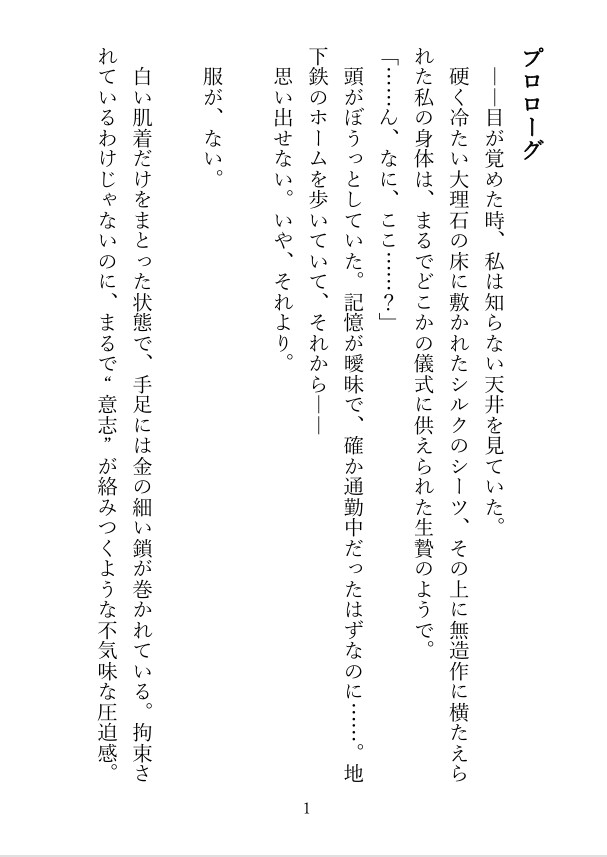 プロローグ
――目が覚めた時、私は知らない天井を見ていた。
硬く冷たい大理石の床に敷かれたシルクのシーツ、その上に無造作に横たえら
れた私の身体は、まるでどこかの儀式に供えられた生贄のようで。
「……ん、なに、ここ……？」
頭がぼうっとしていた。記憶が曖昧で、確か通勤中だったはずなのに……。地
下鉄のホームを歩いていて、それから――
思い出せない。いや、それより。
服が、ない。
白い肌着だけをまとった状態で、手足には金の細い鎖が巻かれている。拘束さ
れているわけじゃないのに、まるで“意志”が絡みつくような不気味な圧迫感。
1